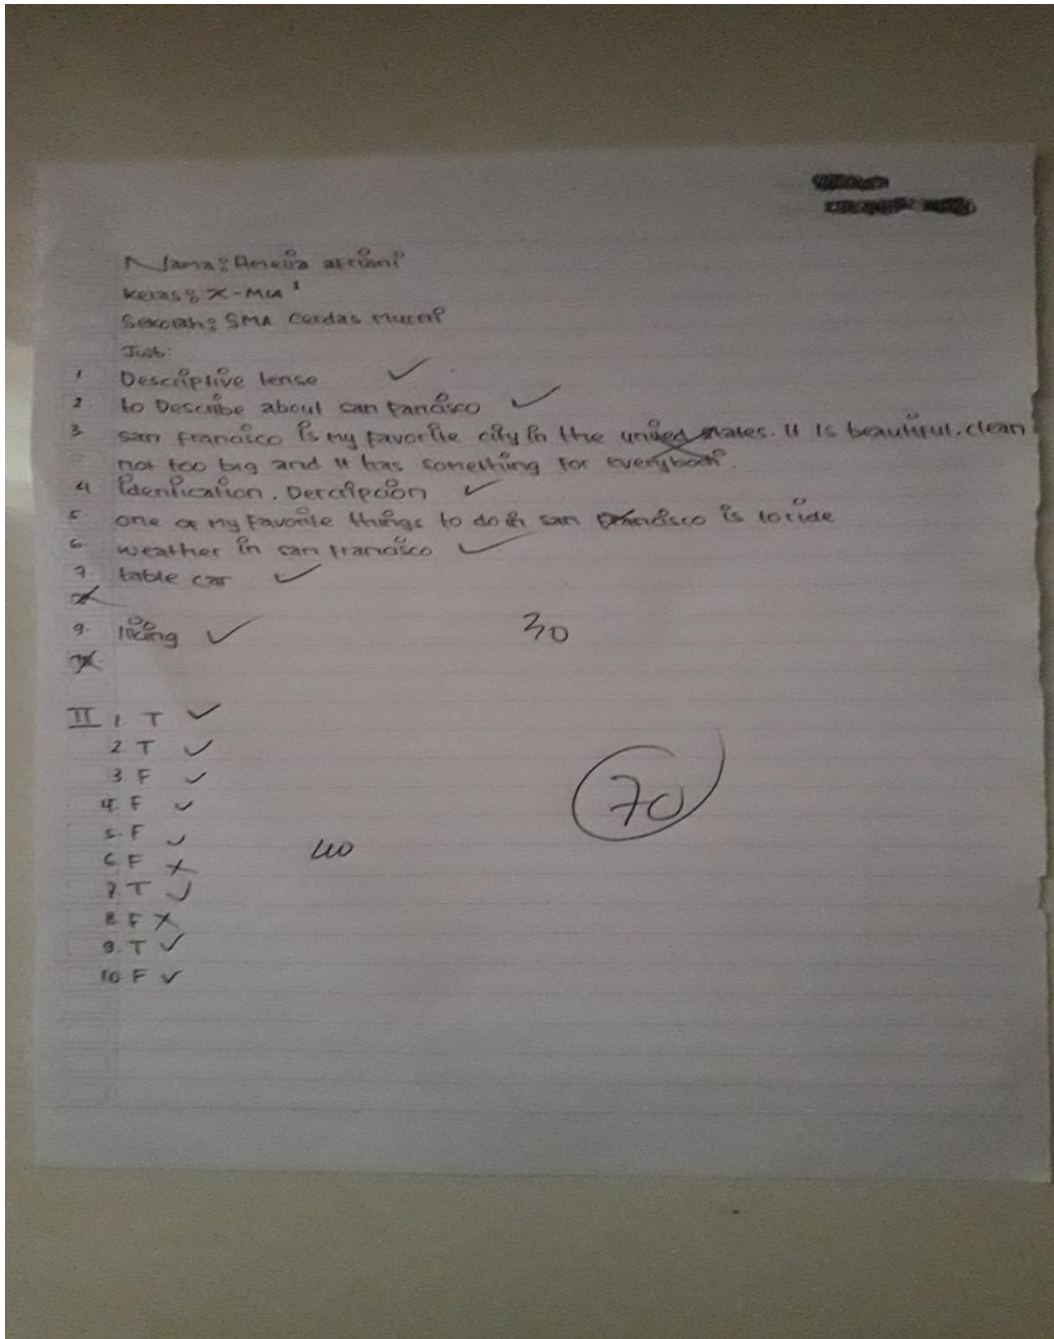 Nama: Amelia afriani
Kelas: X-MIA 1
Sekolah: SMA Cerdas Murni
Jwb:
1. Descriptive tense
2. to Describe about san fancisco
3. san Francisco is my favorite city in the united states. it is beautiful. clean
not too big and it has something for everybody.
4 Idenfication. Dercripcion
5 one of my favorite things to do in san francisco is to ride
6. weather in san francisco
7. table car
9. liking
30
II 1. T
2. T
3. F
4. F
5. F
6. F
7. T
8. F
9. T
10. F
40
70